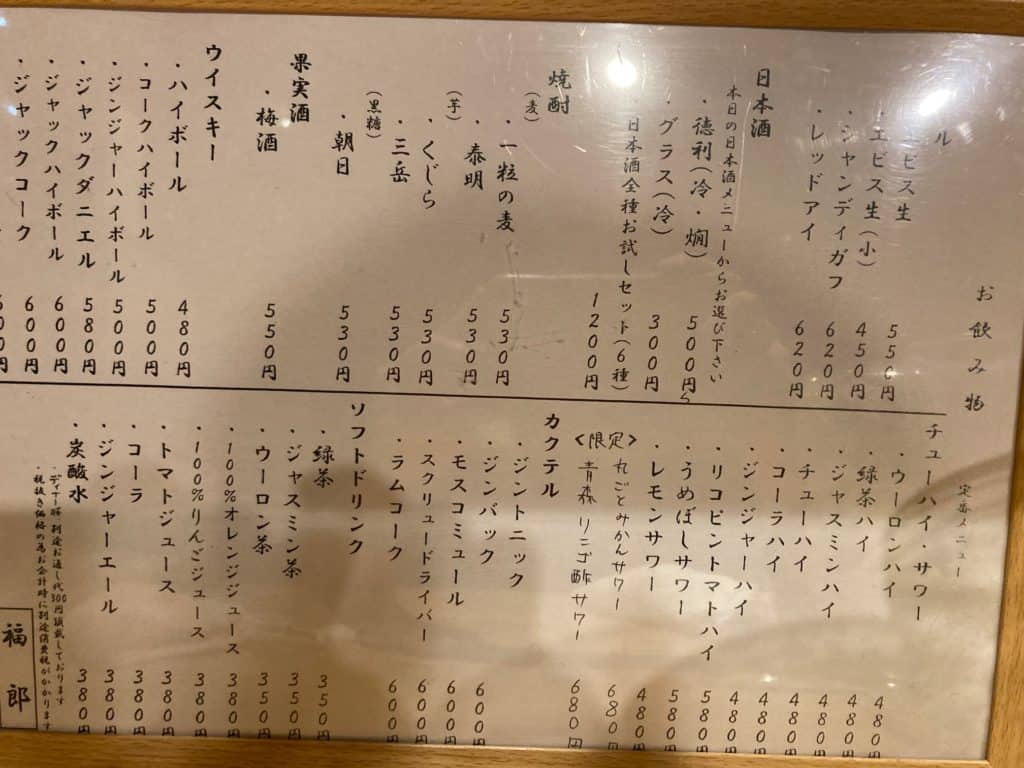 お飲み物
定番メニュー
ル
ビス生 550円
エビス生(小) 450円
・シャンディガフ 620円
・レッドアイ 620円
日本酒
本日の日本酒メニューからお選び下さい
・徳利(冷・燗) 500円
・グラス(冷) 300円
・日本酒全種お試しセット(6種) 1200円
焼酎
(麦)
・一粒の麦 530円
・泰明 530円
(芋)
・くじら 530円
・三岳 530円
(黒糖)
・朝日 530円
果実酒
・梅酒 550円
ウイスキー
・ハイボール 480円
・コークハイボール 500円
・ジンジャーハイボール 500円
・ジャックダニエル 580円
・ジャックハイボール 600円
・ジャックコーク 600円
チューハイ・サワー
・ウーロンハイ 480円
・緑茶ハイ 480円
・ジャスミンハイ 480円
・チューハイ 480円
・コーラハイ 480円
・ジンジャーハイ 480円
・リコピントマトハイ 580円
・うめぼしサワー 580円
・レモンサワー 480円
<限定> 丸ごとみかんサワー 680円
青森リンゴ酢サワー 680円
カクテル
・ジントニック 600円
・ジンバック 600円
・モスコミュール 600円
・スクリュードライバー 600円
・ラムコーク 600円
ソフトドリンク
・緑茶 350円
・ジャスミン茶 350円
・ウーロン茶 350円
・100%オレンジジュース 380円
・100%りんごジュース 380円
・トマトジュース 380円
・コーラ 380円
・ジンジャーエール 380円
・炭酸水 380円
・ディナー時 別途お通し代300円頂戴しております
・税抜き価格の為お会計時に別途消費税がかかります
福郎